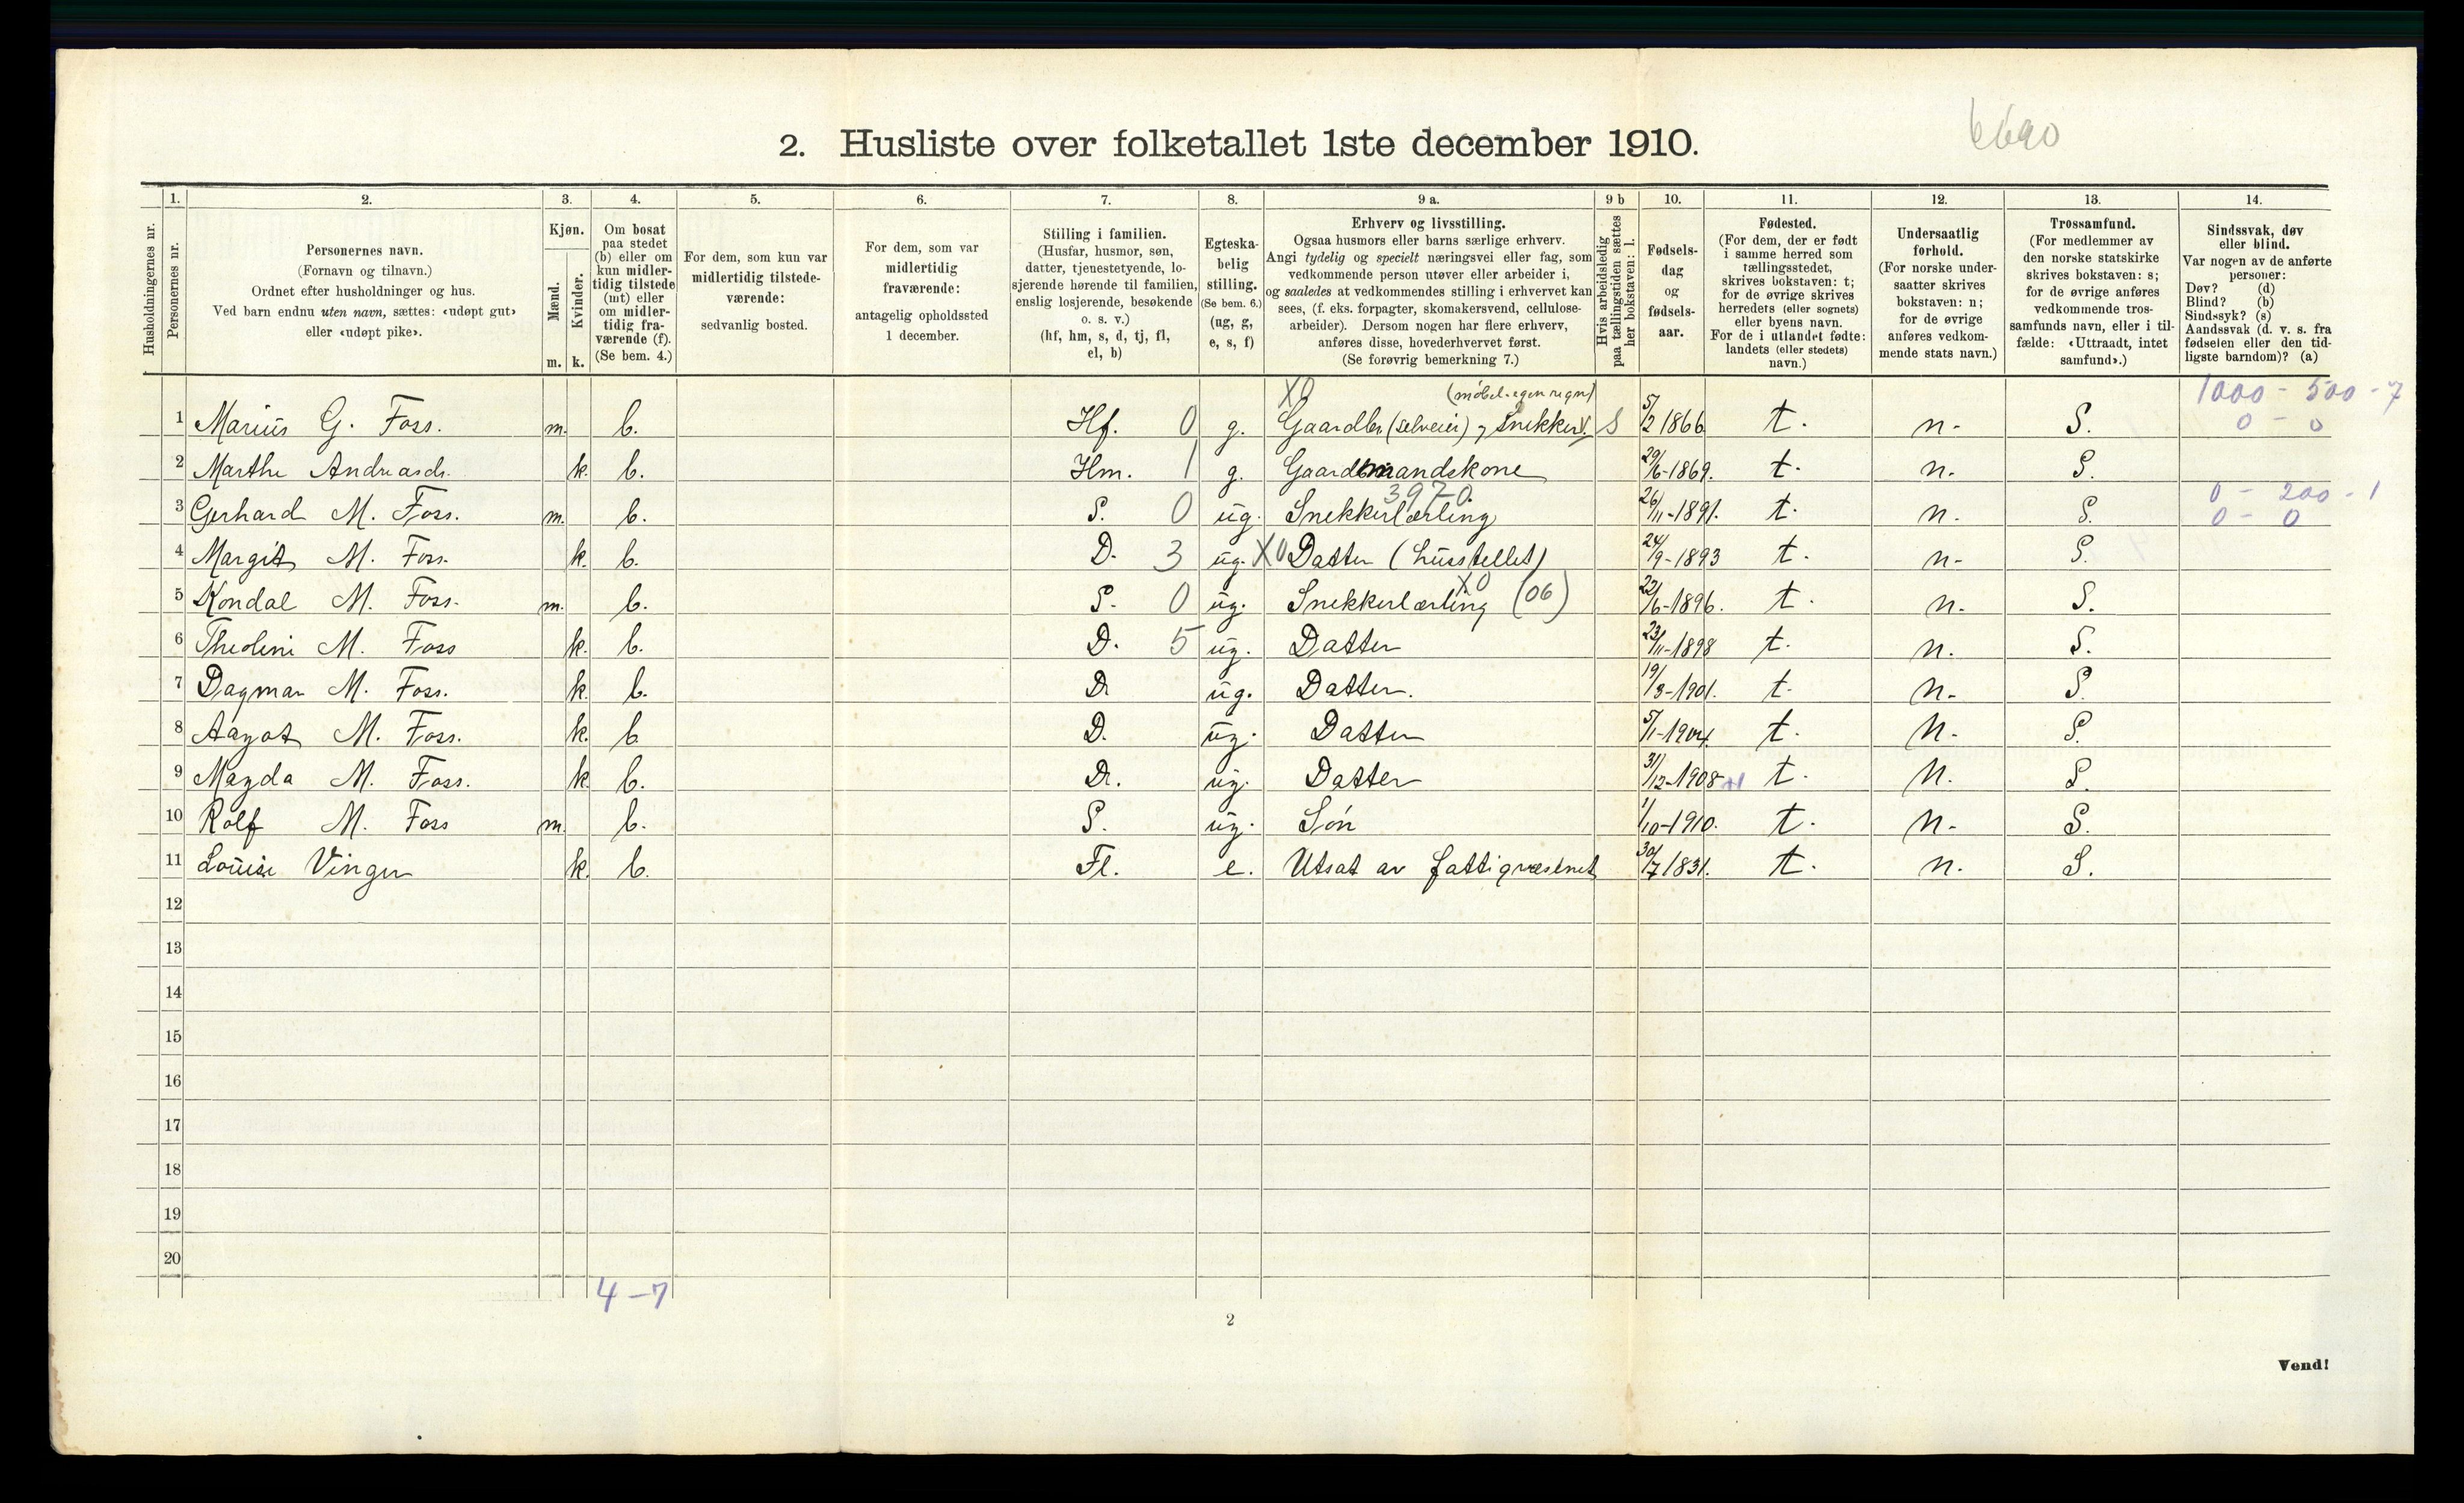 6690
2. Husliste over folketallet 1ste december 1910.
Husholdningernes nr.
1. Personernes nr.
2. Personernes navn. (Fornavn og tilnavn.) Ordnet efter husholdninger og hus. Ved barn endnu uten navn, sættes: «udøpt gut» eller «udøpt pike».
3. Kjøn. Mænd. m. Kvinder. k.
4. Om bosat paa stedet (b) eller om kun midlertidig tilstede (mt) eller om midlertidig fraværende (f). (Se bem. 4.)
5. For dem, som kun var midlertidig tilstedeværende: sedvanlig bosted.
6. For dem, som var midlertidig fraværende: antagelig opholdssted 1 december.
7. Stilling i familien. (Husfar, husmor, søn, datter, tjenestetyende, losjerende hørende til familien, enslig losjerende, besøkende o. s. v.) (hf, hm, s, d, tj, fl, el, b)
8. Egteskabelig stilling. (Se bem. 6.) (ug, g, e, s, f)
9 a. Erhverv og livsstilling. Ogsaa husmors eller barns særlige erhverv. Angi tydelig og specielt næringsvei eller fag, som vedkommende person utøver eller arbeider i, og saaledes at vedkommendes stilling i erhvervet kan sees, (f. eks. forpagter, skomakersvend, cellulosearbeider). Dersom nogen har flere erhverv, anføres disse, hovederhvervet først. (Se forøvrig bemerkning 7.)
9 b Hvis arbeidsledig paa tællingstiden sættes her bokstaven: l.
10. Fødselsdag og fødselsaar.
11. Fødested. (For dem, der er født i samme herred som tællingsstedet, skrives bokstaven: t; for de øvrige skrives herredets (eller sognets) eller byens navn. For de i utlandet fødte: landets (eller stedets) navn.)
12. Undersaatlig forhold. (For norske undersaatter skrives bokstaven: n; for de øvrige anføres vedkommende stats navn.)
13. Trossamfund. (For medlemmer av den norske statskirke skrives bokstaven: s; for de øvrige anføres vedkommende trossamfunds navn, eller i tilfælde: «Uttraadt, intet samfund».)
14. Sindssvak, døv eller blind. Var nogen av de anførte personer: Døv? (d) Blind? (b) Sindssyk? (s) Aandssvak (d. v. s. fra fødselen eller den tidligste barndom)? (a)
X0 (möbel-egen regn) 1000 - 500 - 7
1 Marius G. Foss. m. b. Hf. 0 g. Gaardbr. (selveier) og Snekker S 5/2 1866 t. n. S. 0 - 0
2 Marthe Andreasdr. k. b. Hm. 1 g. Gaardmandskone 29/6-1869. t. n. S.
3970. 0 - 200 - 1
3 Gerhard M. Foss. m. b. S. 0 ug. Snekkerlærling 26/11-1891. t. n. S. 0 - 0
4 Margit M. Foss. k. b. D. 3 ug. X0 Datter (husstellet) 24/9-1893 t. n. S.
5 Kondal M. Foss. m. b. S. 0 ug. Snekkerlærling X0 (06) 22/6-1896. t. n. S.
6 Theoline M. Foss k. b. D. 5 ug. Datter 23/11-1898 t. n. S.
7 Dagmar M. Foss. k. b. D ug. Datter. 19/3-1901. t. n. S.
8 Aagot M. Foss. k. b D. ug. Datter 5/1-1904. t. n. S.
9 Magda M. Foss. k. b. D. ug. Datter 31/12-1908 t. n. S.
10 Rolf M. Foss m. b. S. ug. Sön 1/10-1910. t. n. S.
11 Louise Vinger k. b. Fl. e. Utsat av fattigvæsenet 30/7 1831. t. n. S.
12
13
14
15
16
17
18
19
20
4 - 7
2
Vend!